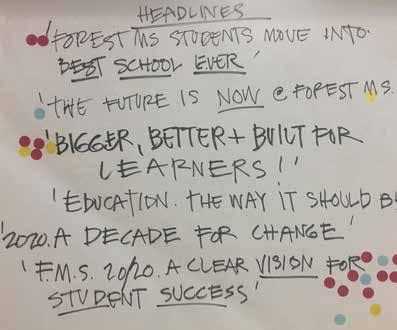 HEADLINES
'FOREST MS STUDENTS MOVE INTO
BEST SCHOOL EVER'
'THE FUTURE IS NOW @ FOREST M.S.
'BIGGER, BETTER + BUILT FOR
LEARNERS!'
'EDUCATION. THE WAY IT SHOULD B
'2020. A DECADE FOR CHANGE'
'F.M.S. 20/20. A CLEAR VISION FOR
STUDENT SUCCESS'